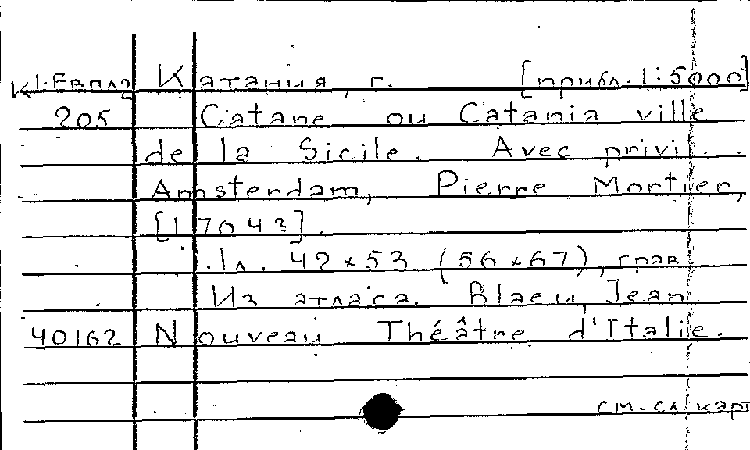 К1-Евпл2 Катания, г. [прибл. 1:5000]
205 Catane ou Catania ville
de la Sicile. Avec privil.
Amsterdam, Pierre Mortier,
[1704 г].
1л. 42×53 (56×67), грав
Из атласа. Blaeu, Jean
40162 Nouveau Théâtre d'Italie.
см. сл. карт